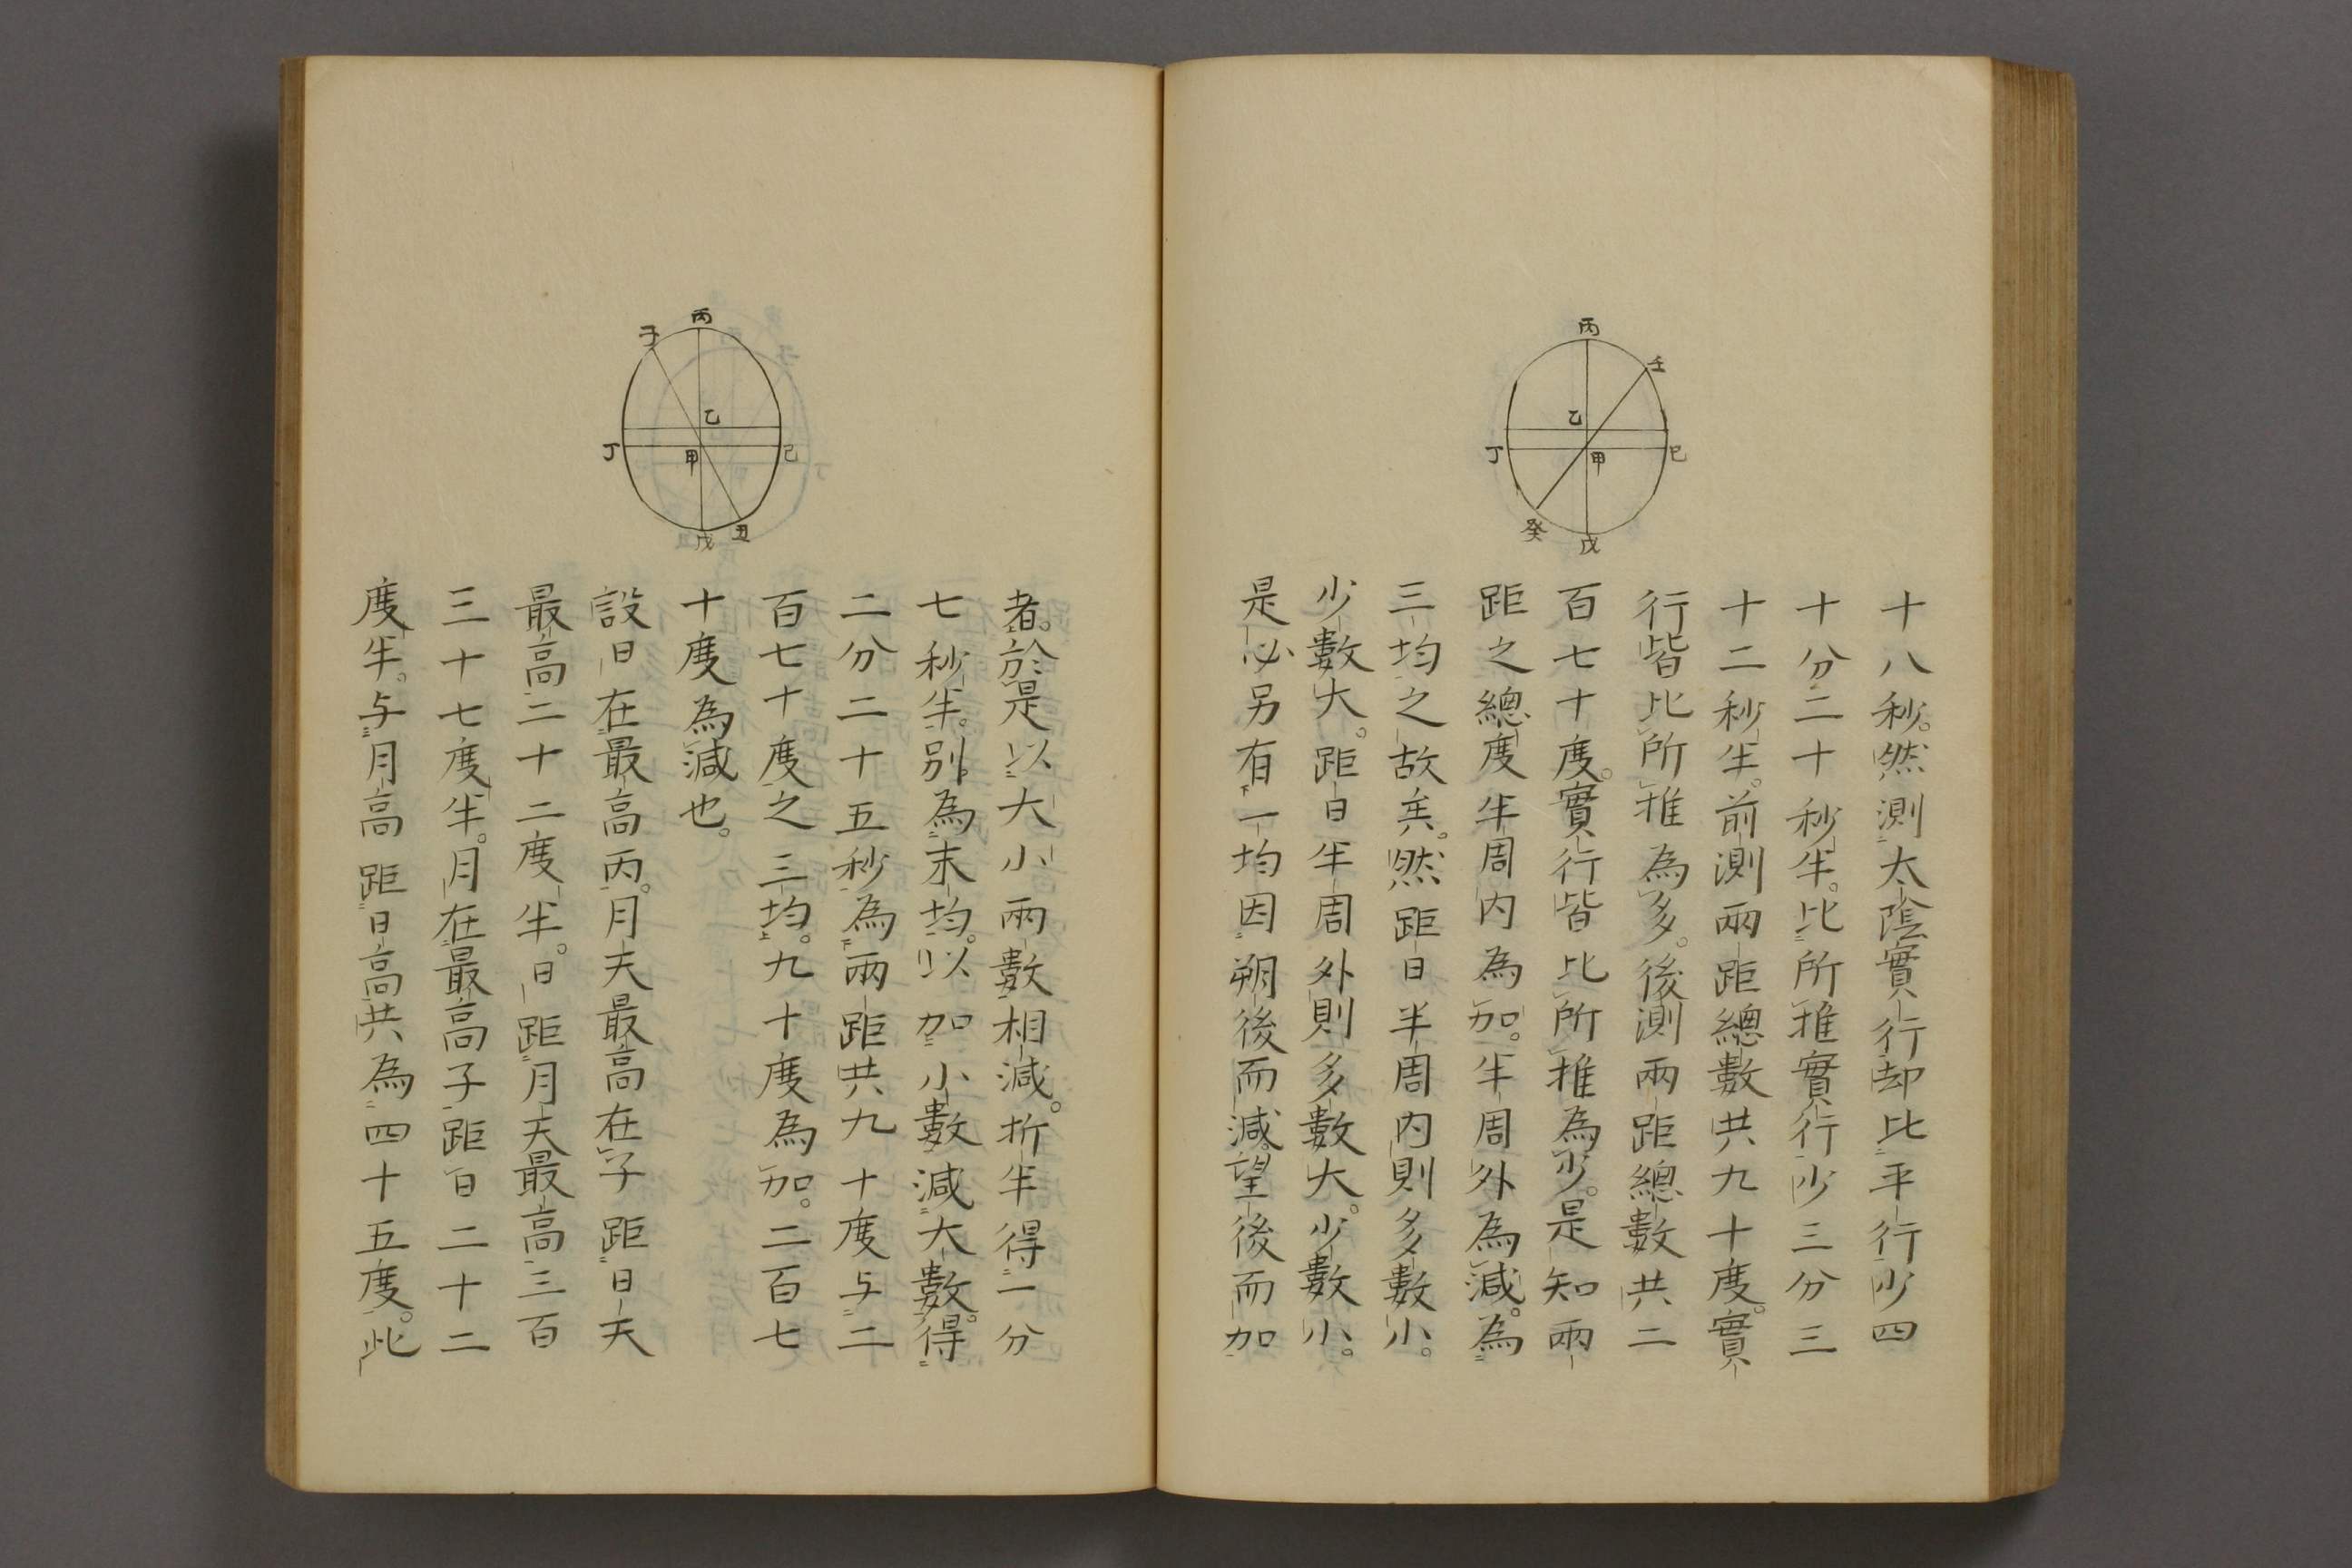 丙
壬
乙
丁
甲
巳
癸
戊
十八秒。然測太陰實行却比平行少四
十分二十秒半。比所推實行少三分三
十二秒半。前測兩距總數共九十度。實
行皆比所推為多。後測兩距總數共二
百七十度。實行皆比所推為少。是知兩
距之總度半周内為加。半周外為減。為
三均之故矣。然距日半周内則多數小。
少數大。距日半周外則多數大。少數小。
是必另有一均因朔後而減。望後而加
丙
子
乙
丁
甲
巳
丑
戊
者。於是以大小兩數相減。折半得一分
七秒半。別為末均。以加小數減大數。得
二分二十五秒為兩距共九十度与二
百七十度之三均。九十度為加。二百七
十度為減也。
設日在最高丙。月天最高在子距日天
最高二十二度半。日距月天最高三百
三十七度半。月在最高子距日二十二
度半。与月高距日高共為四十五度。此